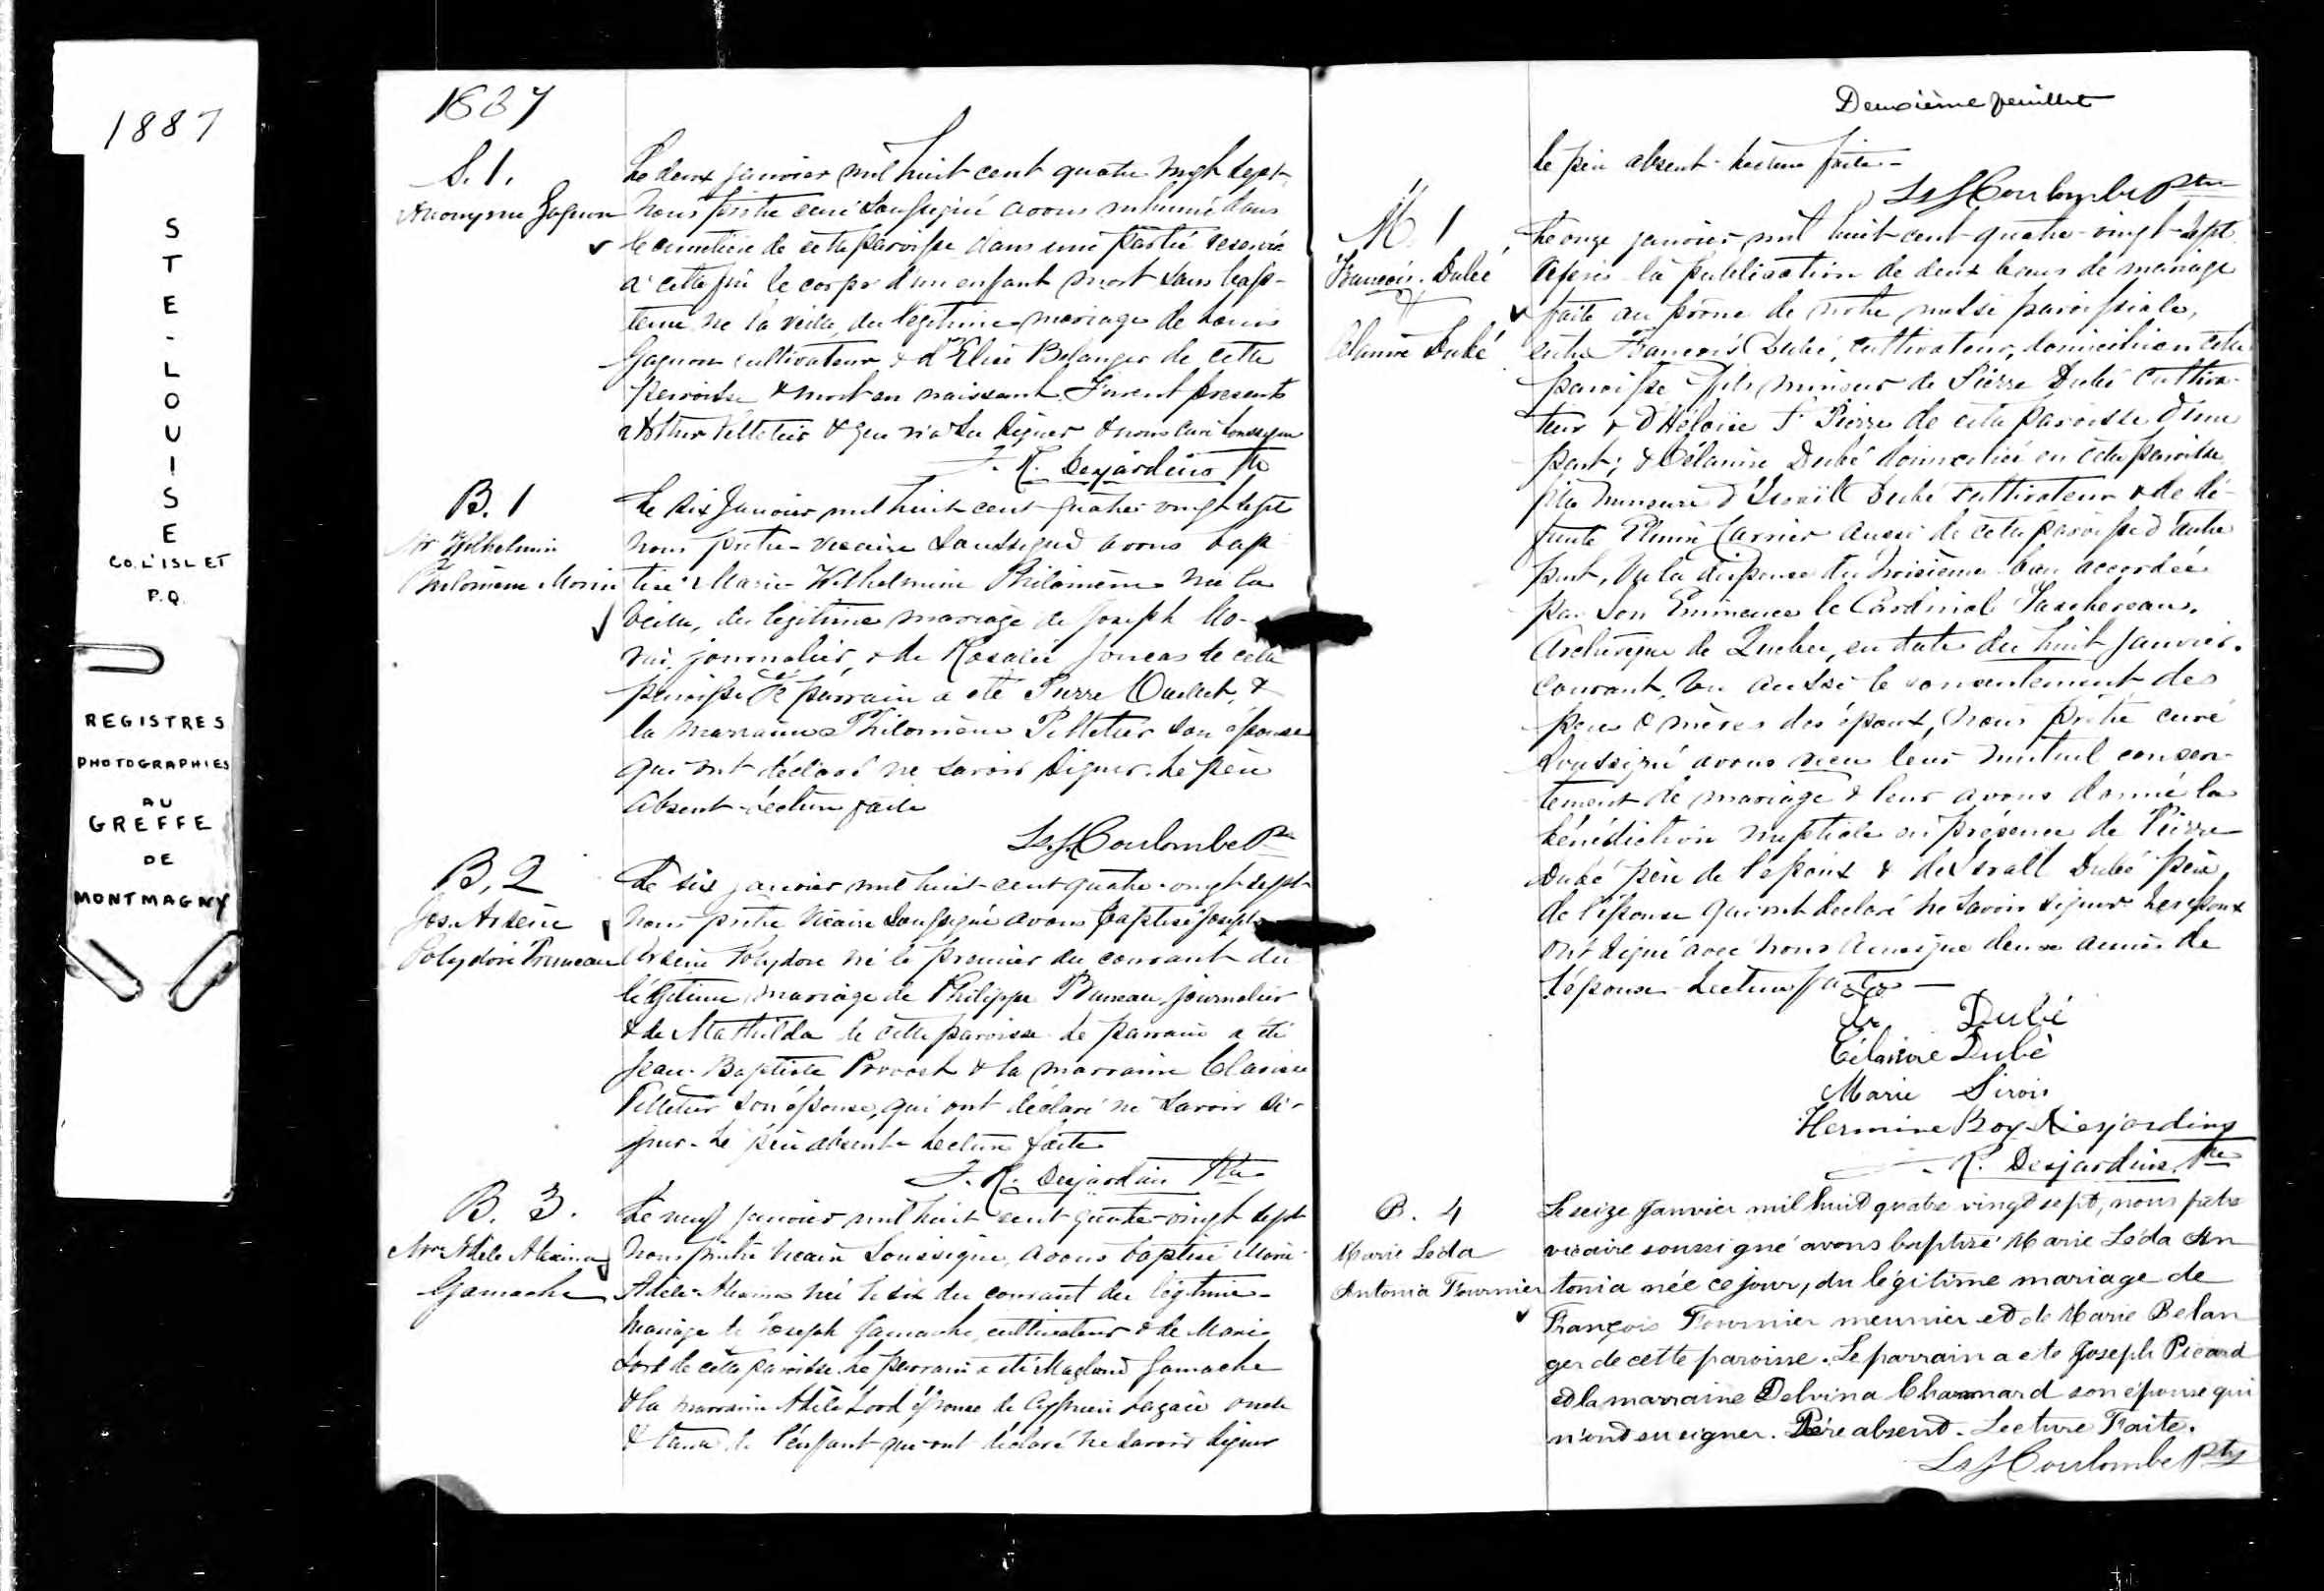 1887
STE-LOUISE
CO. L'ISLET
P.Q.
REGISTRES
PHOTOGRAPHIES
AU
GREFFE
DE
MONTMAGNY
1887
S. 1.
Anonyme Gagnon
Le deux janvier mil huit cent quatre vingt sept
nous prêtre curé soussigné avons inhumé dans
le cimetière de cette paroisse dans une partie reservée
à cette fin le corps d'un enfant mort sans bap-
teme né la veille, du légitime mariage de Louis
Gagnon cultivateur & d'Elise Belanger de cette
paroisse & mort en naissant. Furent presents
Arthur Pelletier & qui n'a su signer & nous curé soussigné
F. R. Desjardins Ptre
B. 1
Mie Wilhelmin
Philomène Morin
Le six Janvier mil huit cent quatre vingt sept
nous prêtre-vicaire soussigné avons bap
tisé Marie Wilhelmine Philomène née la
veille, du légitime mariage de Joseph Mo-
rin, journalier, & de Rosalie Joncas de cette
paroisse Le parrain a été Pierre Ouellet, &
la marraine Philomène Pelletier son épouse
qui ont déclaré ne savoir signer. Le père
absent - Lecture faite
Ls. J. Coulombe Ptre
B. 2
Jos. Arsène
Polydore Pruneau
Le six janvier mil huit cent quatre-vingt-sept
nous prêtre vicaire soussigné avons baptisé Joseph
Arsène Polydore né le premier du courant du
légitime mariage de Philippe Pruneau, journalier
& de Mathilda de cette paroisse. Le parrain a été
Jean-Baptiste Provost & la marraine Clarisse
Pelletier son épouse, qui ont déclaré ne savoir si-
gner - Le père absent - Lecture faite
F. R. Desjardins Ptre
B. 3.
Mie Adèle Alexina
Gamache
Le neuf janvier mil huit cent quatre-vingt sept
nous prêtre vicaire soussigné, avons baptisé Marie
Adèle Alexina née le six du courant du légitime
mariage de Joseph Gamache, cultivateur & de Marie
Lord de cette paroisse. Le parrain a été Magloire Gamache
& la marraine Adèle Lord épouse de Cyprien oncle
& tante de l'enfant qui ont déclaré ne savoir signer
Deuxième feuillet
le père absent - Lecture faite -
Ls J Coulombe Ptre
M. 1
François Dubé
&
Célanire Dubé
Le onze janvier mil huit cent quatre-vingt-sept
après la publication de deux bans de mariage
faite au prône de notre messe paroissiale,
entre François Dubé, cultivateur, domicilié en cette
paroisse fils mineur de Pierre Dubé cultiva-
teur & d'Héloise St Pierre de cette paroisse d'une
part; & Célanire Dubé domiciliée en cette paroisse
fille mineure d'Israël Dubé cultivateur & de dé-
funte Carrier aussi de cette paroisse d'autre
part, Vu la dispense du troisième ban accordée
par Son Eminence le Cardinal Taschereau,
Archevêque de Quebec, en date du huit janvier
courant, Vu aussi le consentement des
père & mères des époux, nous prêtre curé
soussigné avons reçu leur mutuel consen-
tement de mariage & leur avons donné la
bénédiction nuptiale en présence de Pierre
Dubé père de l'époux & de Israël Dubé père
de l'épouse qui ont declaré ne savoir signer. Les époux
ont signé avec nous ainsi que deux amies de
l'épouse Lecture faite —
Dubé
Célanire Dubé
Marie Sirois
Hermine Roy Desjardins
R. Desjardins Ptre
B. 4
Marie Léda
Antonia Fournier
Le seize Janvier mil huit quatre vingt sept, nous ptre
vicaire soussigné avons baptisé Marie Léda An
tonia née ce jour, du légitime mariage de
François Fournier meunier et de Marie Belan
ger de cette paroisse. Le parrain a ete Joseph Picard
et la marraine Delvina Chamard son épouse qui
n'ont su signer. Père absent. Lecture Faite.
Ls J Coulombe Ptre